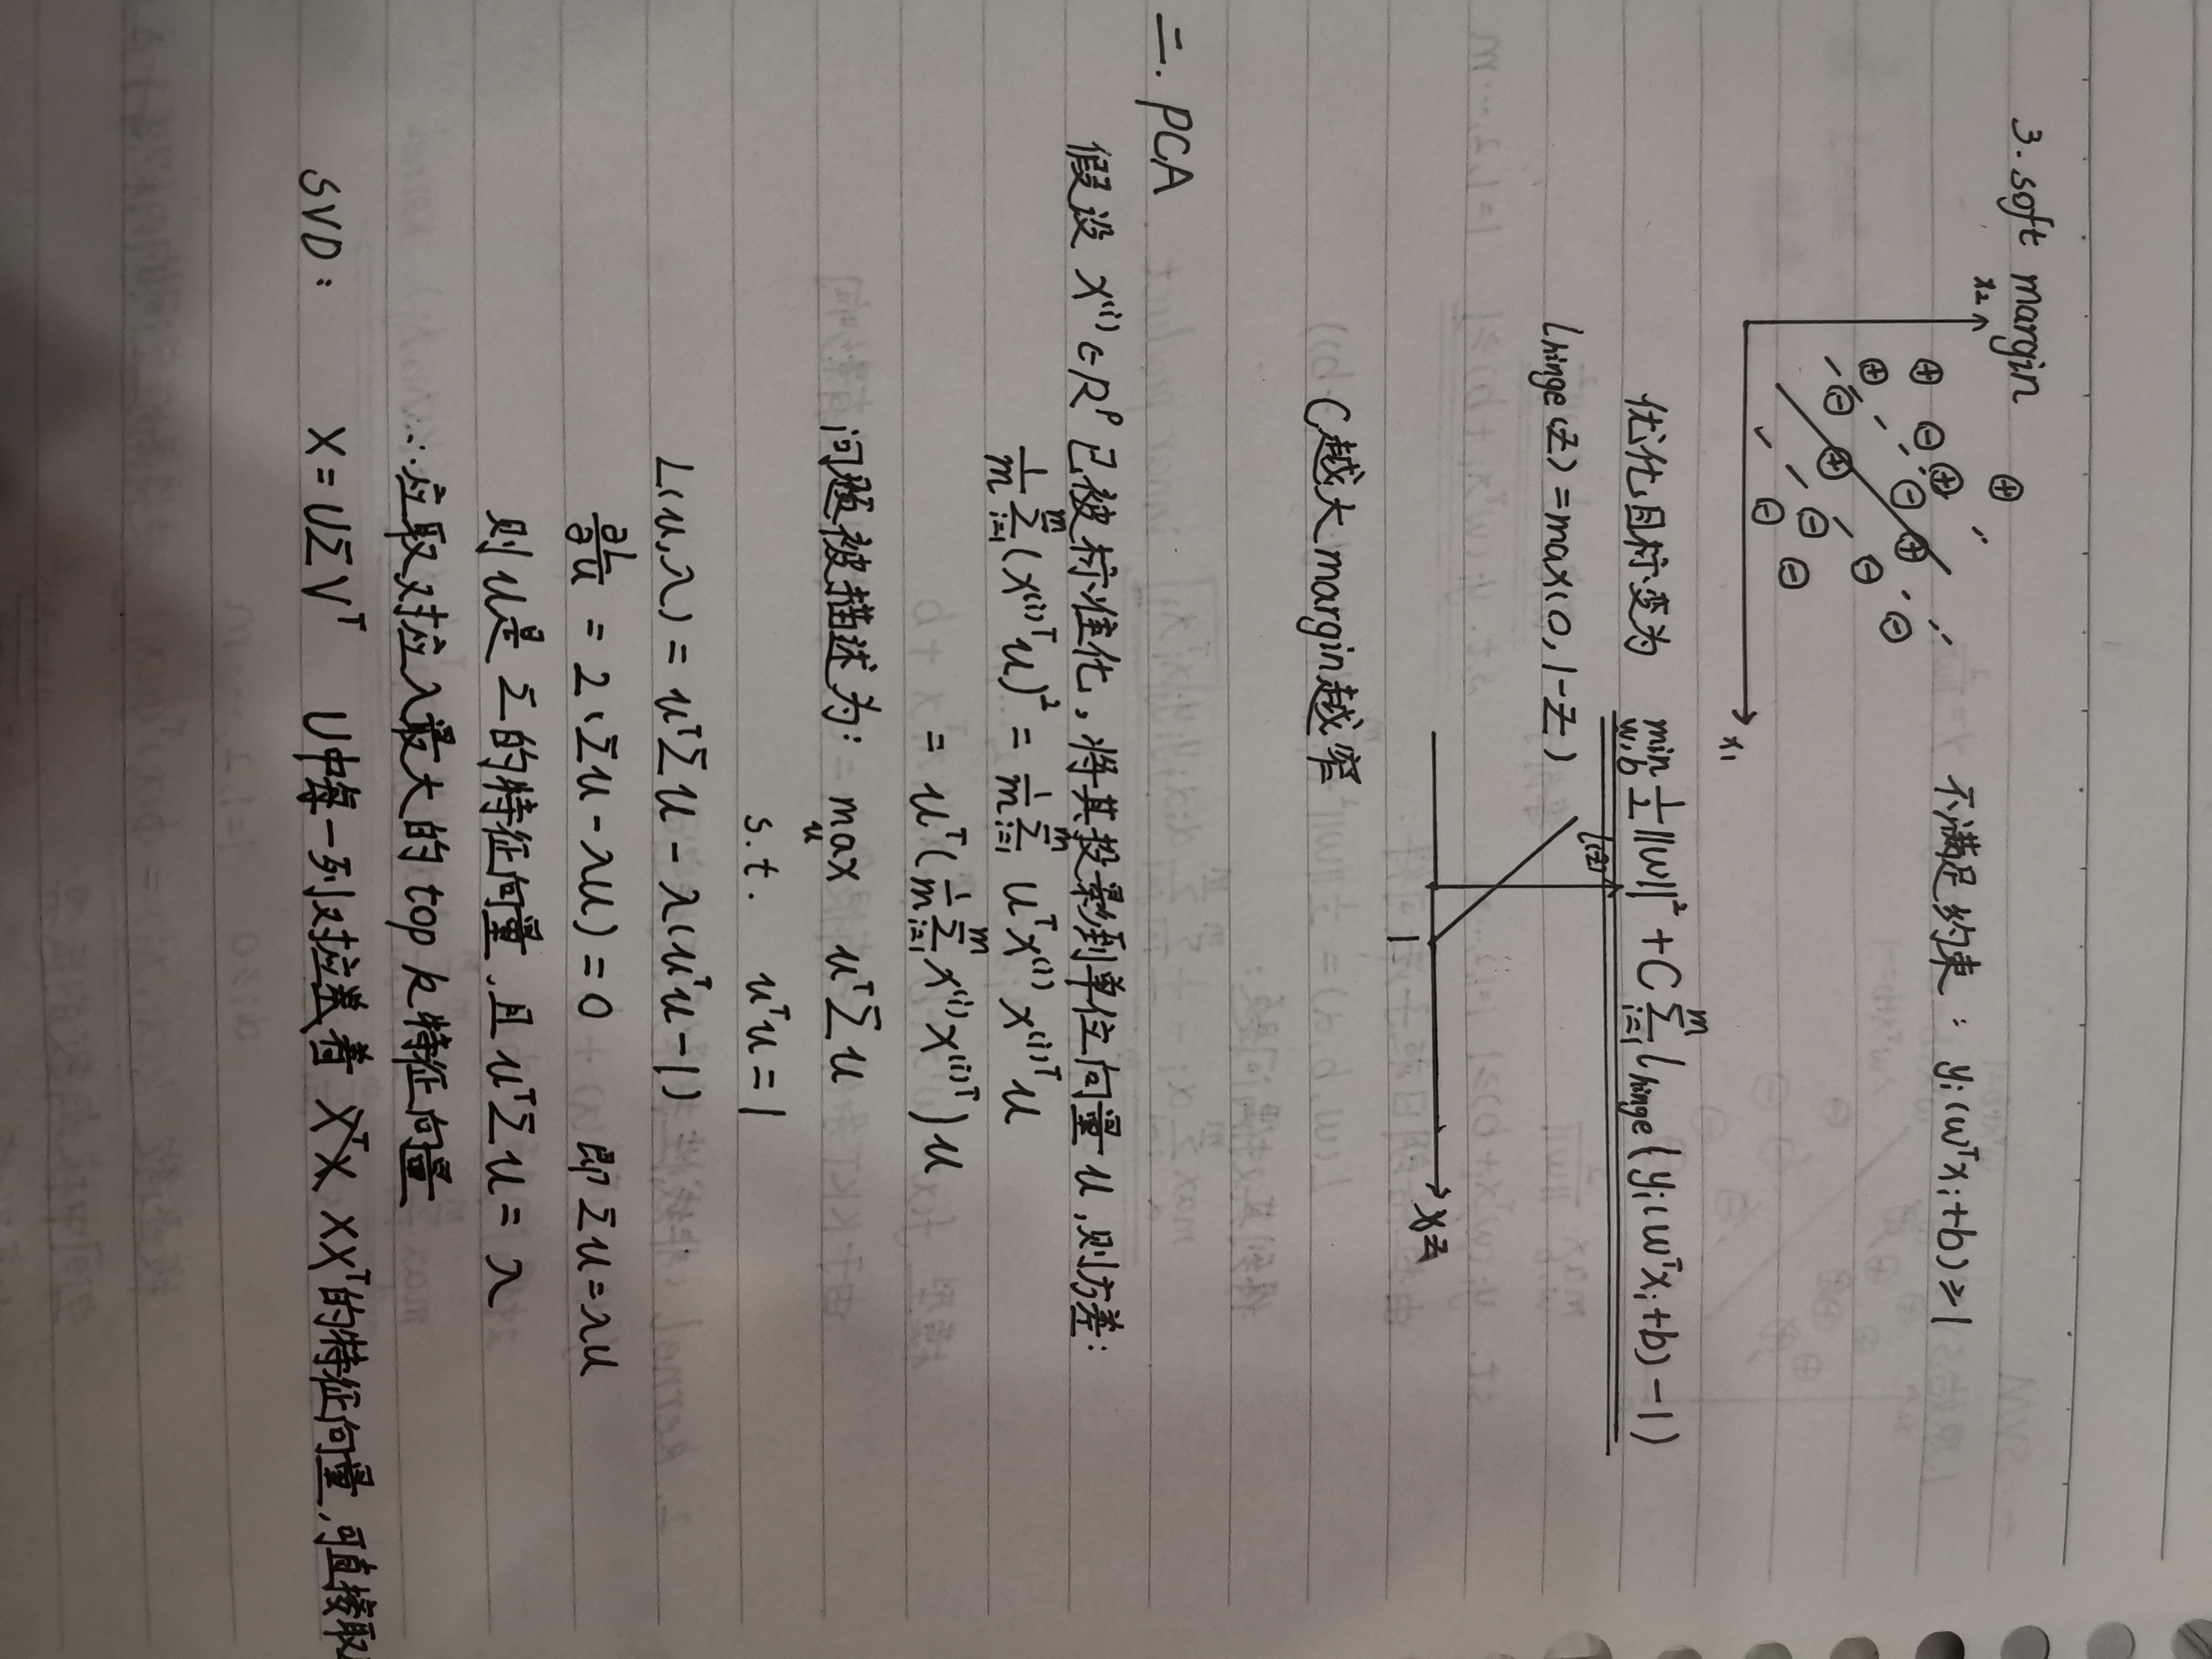 3. soft margin
x2
x1
不满足约束： yi(wᵀxi+b)≥1
优化目标变为 min w,b 1/2||w||² + C Σ i=1 m l hinge (yi(wᵀxi+b)-1)
l hinge(z) = max(0, 1-z)
l(z)
z
1
C越大margin越窄
二. PCA
假设 x⁽ⁱ⁾∈Rᴾ 已被标准化，将其投影到单位向量u，则方差：
1/m Σ i=1 m (x⁽ⁱ⁾ᵀu)² = 1/m Σ i=1 m uᵀx⁽ⁱ⁾ x⁽ⁱ⁾ᵀu
= uᵀ(1/m Σ i=1 m x⁽ⁱ⁾x⁽ⁱ⁾ᵀ)u
问题被描述为： max u uᵀΣu
s.t. uᵀu = 1
L(u,λ) = uᵀΣu - λ(uᵀu-1)
∂L/∂u = 2(Σu-λu) = 0 即Σu=λu
则u是Σ的特征向量，且uᵀΣu = λ
∴应取对应λ最大的top k特征向量
SVD： X=UΣVᵀ U中每一列对应着 XXᵀ的特征向量，可直接取